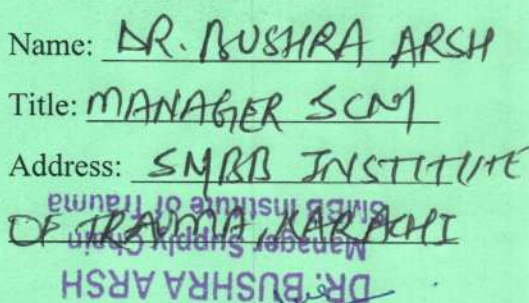 Name: DR. BUSHRA ARSH
Title: MANAGER SCM
Address: SMBB INSTITUTE
OF TRAUMA, KARACHI
DR. BUSHRA ARSH
Manager Supply Chain
SMBB Institute of Trauma